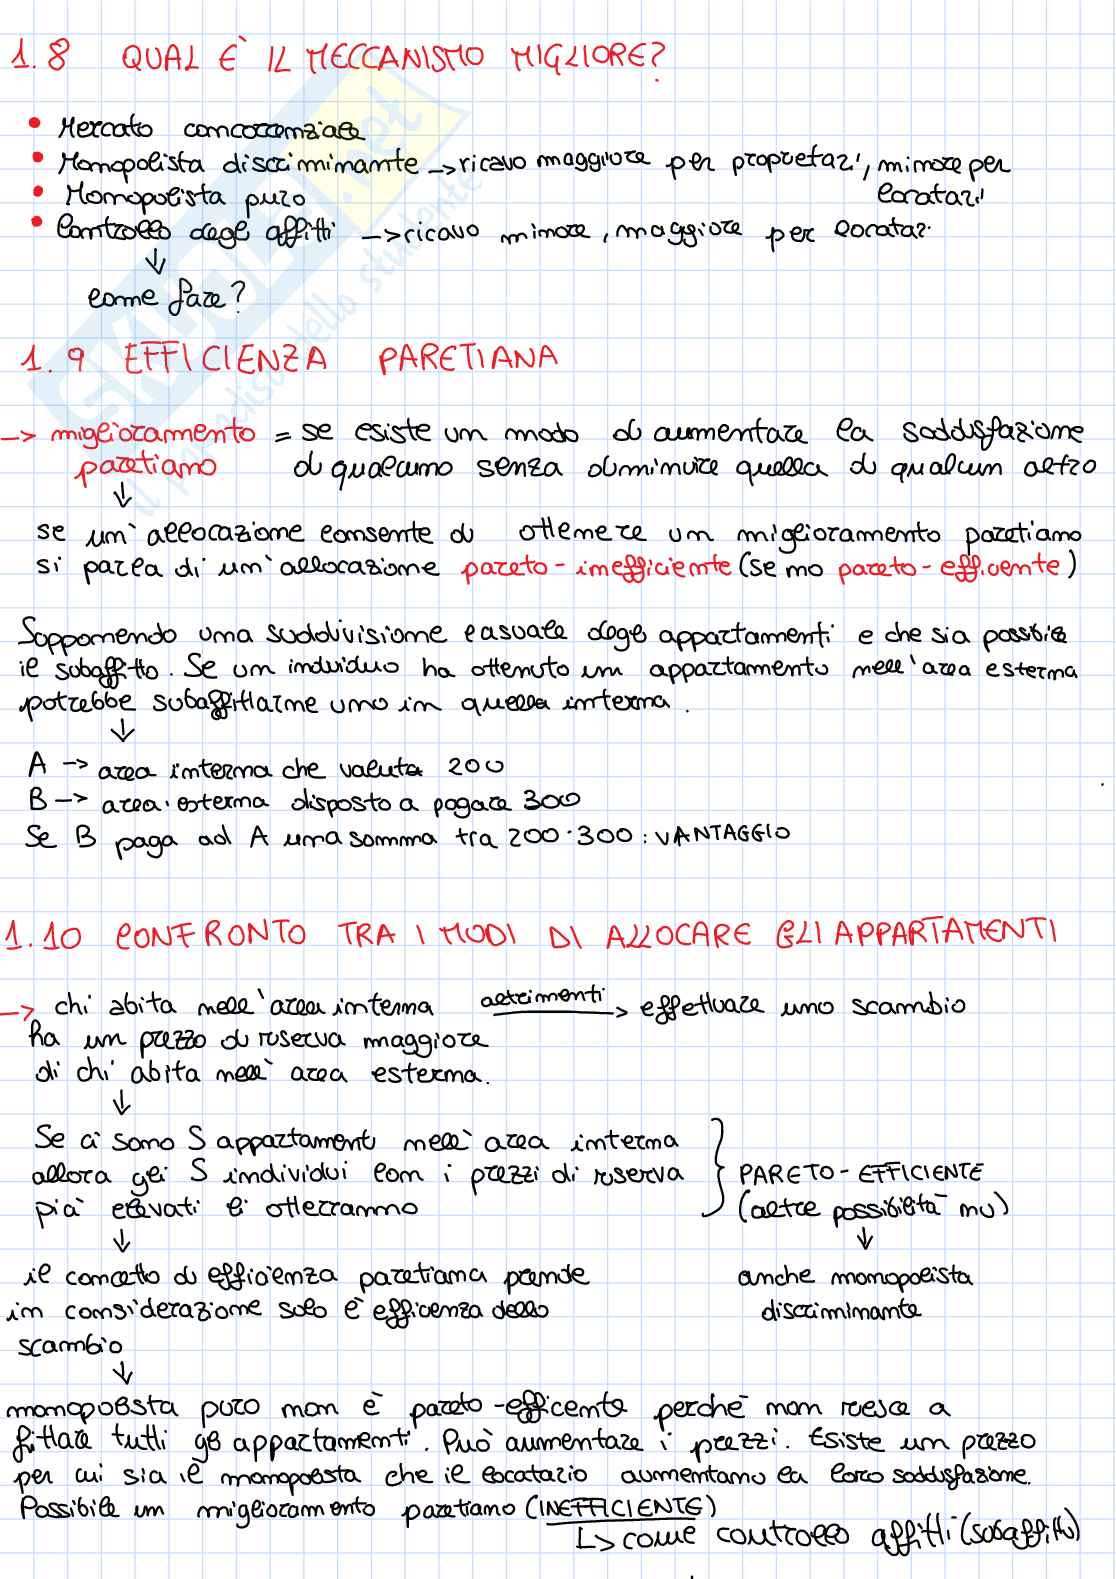 1.8 QUAL È IL MECCANISMO MIGLIORE?
• Mercato concorrenziale
• Monopolista discriminante → ricavo maggiore per proprietari, minore per locatari
• Monopolista puro
• Controllo degli affitti → ricavo minore, maggiore per locatari
↓
come fare?
1.9 EFFICIENZA PARETIANA
→ miglioramento paretiano = se esiste un modo di aumentare la soddisfazione
di qualcuno senza diminuire quella di qualcun altro
↓
se un'allocazione consente di ottenere un miglioramento paretiano
si parla di un'allocazione pareto-inefficiente (se no pareto-efficente)
Supponendo una suddivisione casuale degli appartamenti e che sia possibile
il subaffitto. Se un individuo ha ottenuto un appartamento nell'area esterna
potrebbe subaffittarne uno in quella interna.
↓
A → area interna che valuta 200
B → area esterna disposto a pagare 300
Se B paga ad A una somma tra 200-300: VANTAGGIO
1.10 CONFRONTO TRA I MODI DI ALLOCARE GLI APPARTAMENTI
→ chi abita nell'area interna altrimenti → effettuare uno scambio
ha un prezzo di riserva maggiore
di chi abita nell'area esterna.
↓
Se ci sono S appartamenti nell'area interna
allora gli S individui con i prezzi di riserva
più elevati li otterranno
} PARETO-EFFICIENTE
(altre possibilità no)
↓
anche monopolista
discriminante
↓
il concetto di efficienza paretiana prende
in considerazione solo l'efficenza dello
scambio
↓
monopolista puro non è pareto-efficente perchè non riesce a
fittare tutti gli appartamenti. Può aumentare i prezzi. Esiste un prezzo
per cui sia il monopolista che il locatario aumentano la loro soddisfazione.
Possibile un miglioramento paretiano (INEFFICIENTE)
↳ come controllo affitti (subaffitto)
SKUOLA.net
il paradiso dello studente